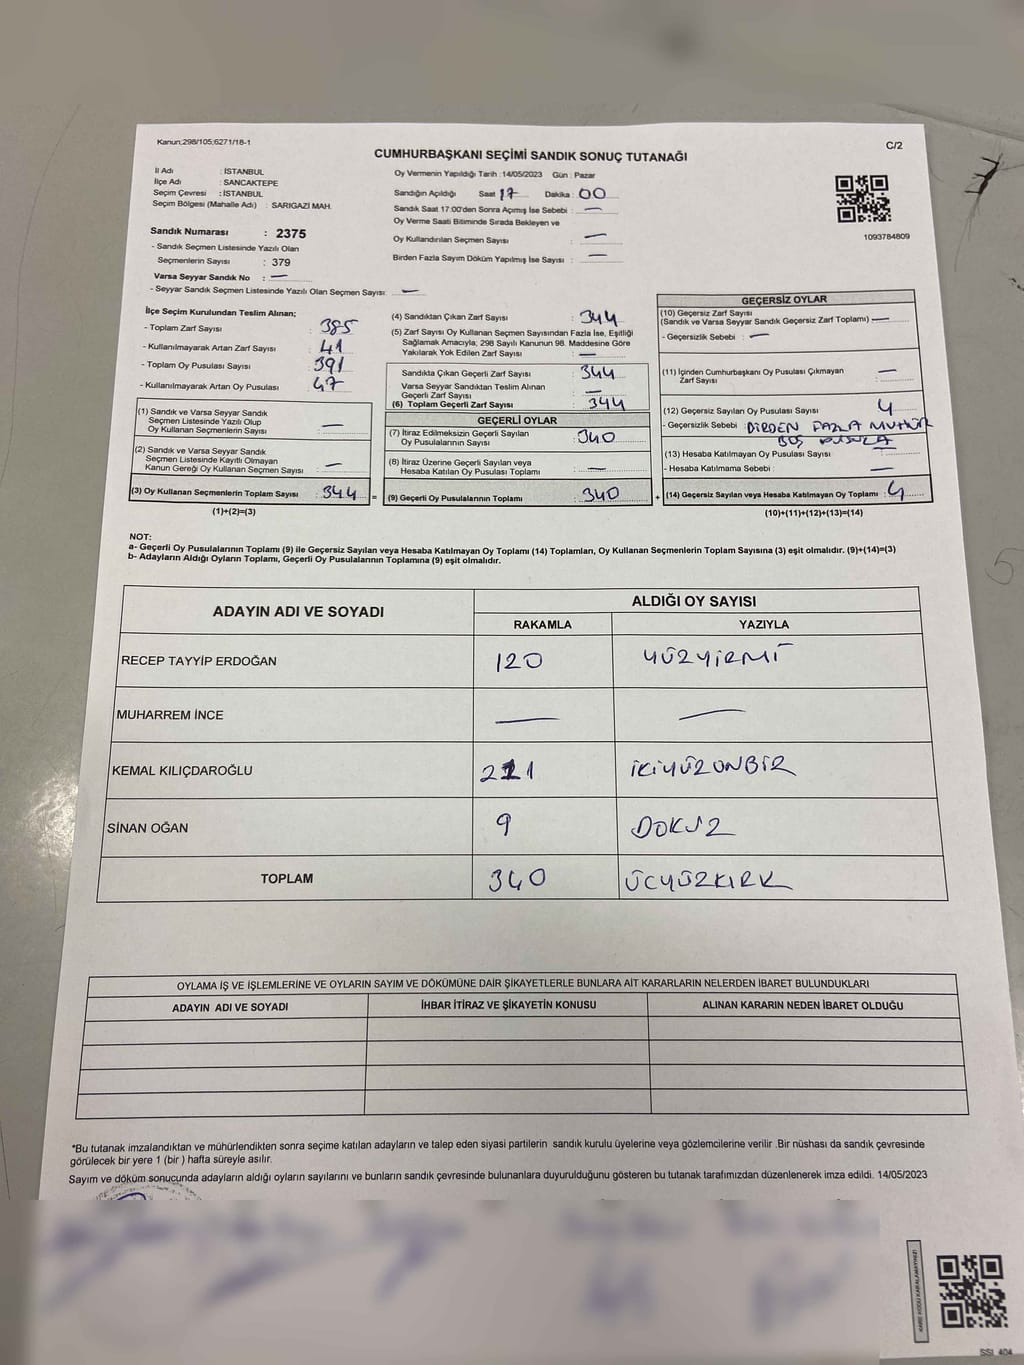 Kanun;298/105;6271/18-1
C/2
CUMHURBAŞKANI SEÇİMİ SANDIK SONUÇ TUTANAĞI
İl Adı : İSTANBUL
İlçe Adı : SANCAKTEPE
Seçim Çevresi : İSTANBUL
Seçim Bölgesi (Mahalle Adı) : SARIGAZİ MAH.
Sandık Numarası : 2375
- Sandık Seçmen Listesinde Yazılı Olan
Seçmenlerin Sayısı : 379
Varsa Seyyar Sandık No : —
- Seyyar Sandık Seçmen Listesinde Yazılı Olan Seçmen Sayısı: —
Oy Vermenin Yapıldığı Tarih :14/05/2023 Gün : Pazar
Sandığın Açıldığı Saat : 17 Dakika : 00
Sandık Saat 17:00'den Sonra Açımış İse Sebebi : —
Oy Verme Saati Bitiminde Sırada Bekleyen ve
Oy Kullandırılan Seçmen Sayısı : —
Birden Fazla Sayım Döküm Yapılmış İse Sayısı : —
1093784809
İlçe Seçim Kurulundan Teslim Alınan;
- Toplam Zarf Sayısı : 385
- Kullanılmayarak Artan Zarf Sayısı : 41
- Toplam Oy Pusulası Sayısı : 391
- Kullanılmayarak Artan Oy Pusulası : 47
(1) Sandık ve Varsa Seyyar Sandık
Seçmen Listesinde Yazılı Olup
Oy Kullanan Seçmenlerin Sayısı : —
(2) Sandık ve Varsa Seyyar Sandık
Seçmen Listesinde Kayıtlı Olmayan
Kanun Gereği Oy Kullanan Seçmen Sayısı : —
(3) Oy Kullanan Seçmenlerin Toplam Sayısı : 344 =
(1)+(2)=(3)
(4) Sandıktan Çıkan Zarf Sayısı : 344
(5) Zarf Sayısı Oy Kullanan Seçmen Sayısından Fazla İse, Eşitliği
Sağlamak Amacıyla; 298 Sayılı Kanunun 98. Maddesine Göre
Yakılarak Yok Edilen Zarf Sayısı : —
Sandıkta Çıkan Geçerli Zarf Sayısı : 344
Varsa Seyyar Sandıktan Teslim Alınan
Geçerli Zarf Sayısı : —
(6) Toplam Geçerli Zarf Sayısı : 344
GEÇERLİ OYLAR
(7) İtiraz Edilmeksizin Geçerli Sayılan
Oy Pusulalarının Sayısı : 340
(8) İtiraz Üzerine Geçerli Sayılan veya
Hesaba Katılan Oy Pusulası Toplamı : —
(9) Geçerli Oy Pusulalarının Toplamı : 340 +
GEÇERSİZ OYLAR
(10) Geçersiz Zarf Sayısı
(Sandık ve Varsa Seyyar Sandık Geçersiz Zarf Toplamı) : —
- Geçersizlik Sebebi : —
(11) İçinden Cumhurbaşkanı Oy Pusulası Çıkmayan
Zarf Sayısı : —
(12) Geçersiz Sayılan Oy Pusulası Sayısı : 4
- Geçersizlik Sebebi : BİRDEN FAZLA MÜHÜR
BOŞ PUSULA
(13) Hesaba Katılmayan Oy Pusulası Sayısı :
- Hesaba Katılmama Sebebi : —
(14) Geçersiz Sayılan veya Hesaba Katılmayan Oy Toplamı : 4
(10)+(11)+(12)+(13)=(14)
NOT:
a- Geçerli Oy Pusulalarının Toplamı (9) ile Geçersiz Sayılan veya Hesaba Katılmayan Oy Toplamı (14) Toplamları, Oy Kullanan Seçmenlerin Toplam Sayısına (3) eşit olmalıdır. (9)+(14)=(3)
b- Adayların Aldığı Oyların Toplamı, Geçerli Oy Pusulalarının Toplamına (9) eşit olmalıdır.
ADAYIN ADI VE SOYADI
ALDIĞI OY SAYISI
RAKAMLA YAZIYLA
RECEP TAYYİP ERDOĞAN 120 YÜZYİRMİ
MUHARREM İNCE — —
KEMAL KILIÇDAROĞLU 211 İKİYÜZONBİR
SİNAN OĞAN 9 DOKUZ
TOPLAM 340 ÜCYÜZKIRK
OYLAMA İŞ VE İŞLEMLERİNE VE OYLARIN SAYIM VE DÖKÜMÜNE DAİR ŞİKAYETLERLE BUNLARA AİT KARARLARIN NELERDEN İBARET BULUNDUKLARI
ADAYIN ADI VE SOYADI İHBAR İTİRAZ VE ŞİKAYETİN KONUSU ALINAN KARARIN NEDEN İBARET OLDUĞU
*Bu tutanak imzalandıktan ve mühürlendikten sonra seçime katılan adayların ve talep eden siyasi partilerin sandık kurulu üyelerine veya gözlemcilerine verilir .Bir nüshası da sandık çevresinde
görülecek bir yere 1 (bir ) hafta süreyle asılır.
Sayım ve döküm sonucunda adayların aldığı oyların sayılarını ve bunların sandık çevresinde bulunanlara duyurulduğunu gösteren bu tutanak tarafımızdan düzenlenerek imza edildi. 14/05/2023
KARE KODU KARALAMAYINIZ!
SSI_404